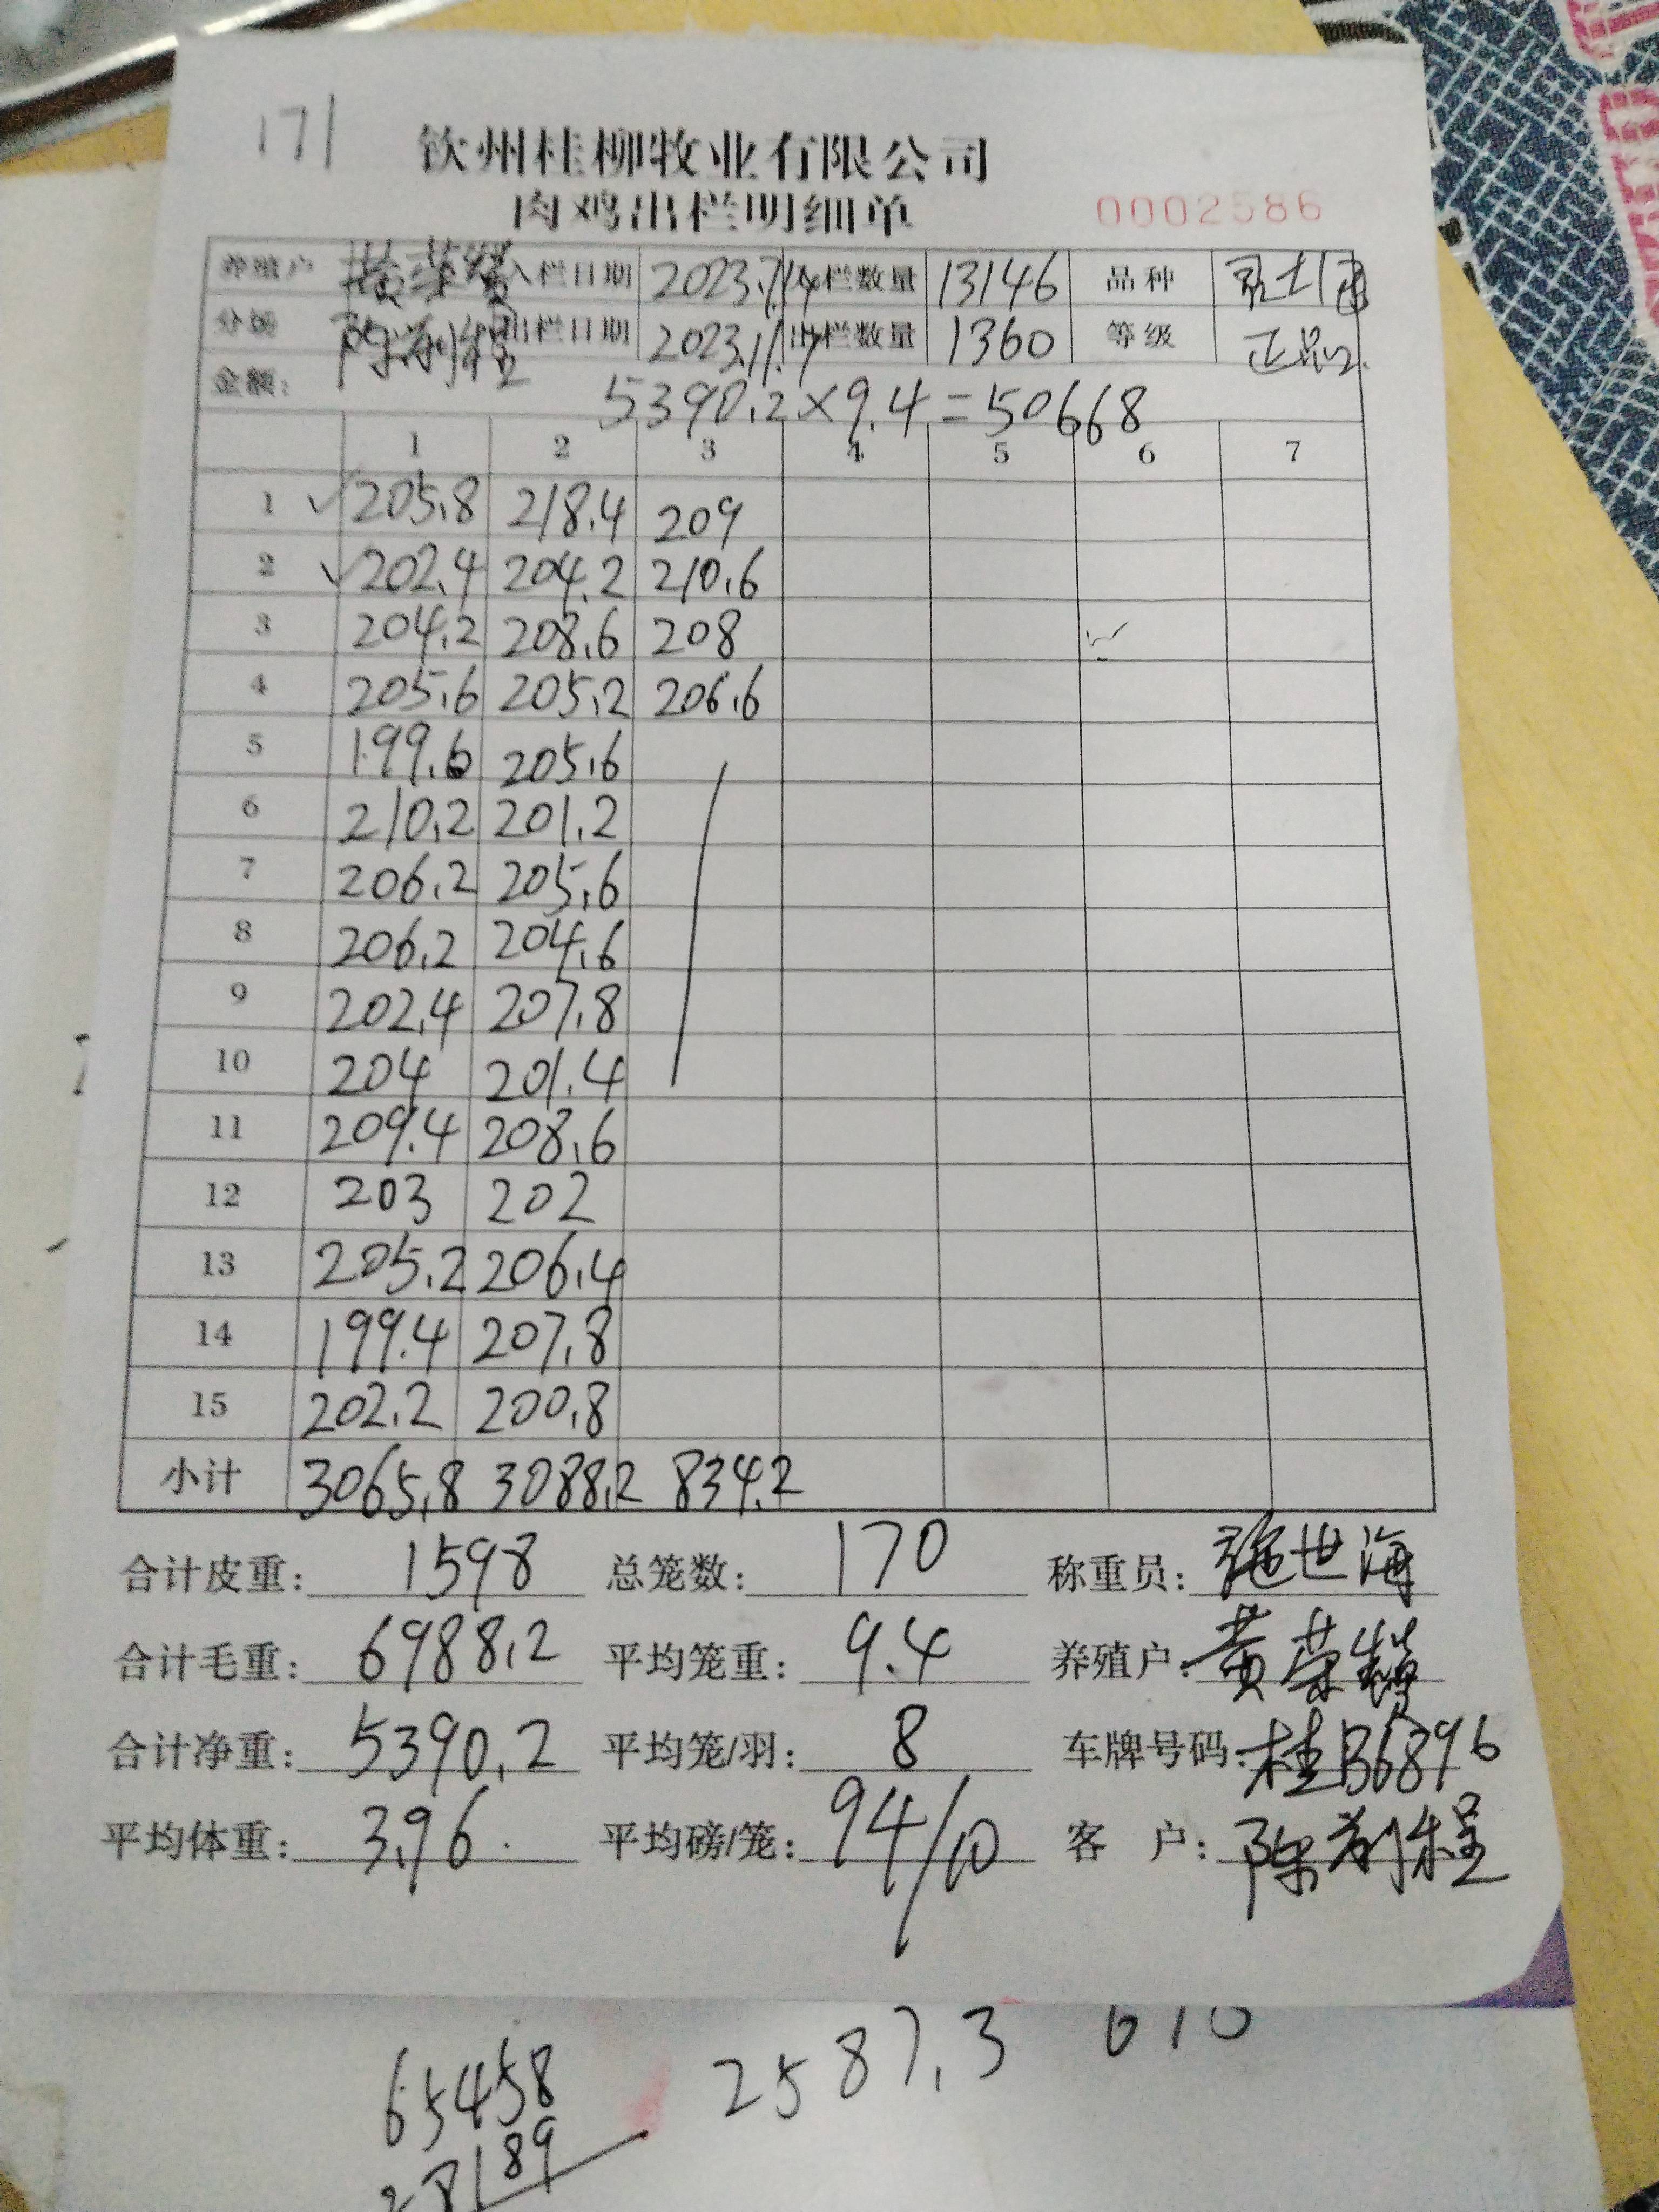 171
钦州桂柳牧业有限公司
肉鸡出栏明细单
0002586
养殖户 入栏日期 2023.7.14 入栏数量 13146 品种
分场 出栏日期 2023.11.7 出栏数量 1360 等级 正品
金额: 5390.2×9.4=50668
1 2 3 4 5 6 7
1 205.8 218.4 209
2 202.4 204.2 210.6
3 204.2 208.6 208
4 205.6 205.2 206.6
5 199.6 205.6
6 210.2 201.2
7 206.2 205.6
8 206.2 204.6
9 202.4 207.8
10 204 201.4
11 209.4 208.6
12 203 202
13 205.2 206.4
14 199.4 207.8
15 202.2 200.8
小计 3065.8 3088.2 834.2
合计皮重: 1598 总笼数: 170 称重员: 世海
合计毛重: 6988.2 平均笼重: 9.4 养殖户: 黄荣
合计净重: 5390.2 平均笼/羽: 8 车牌号码: 桂B6896
平均体重: 3.96. 平均磅/笼: 94/10 客 户: 陈程
65458 2587.3